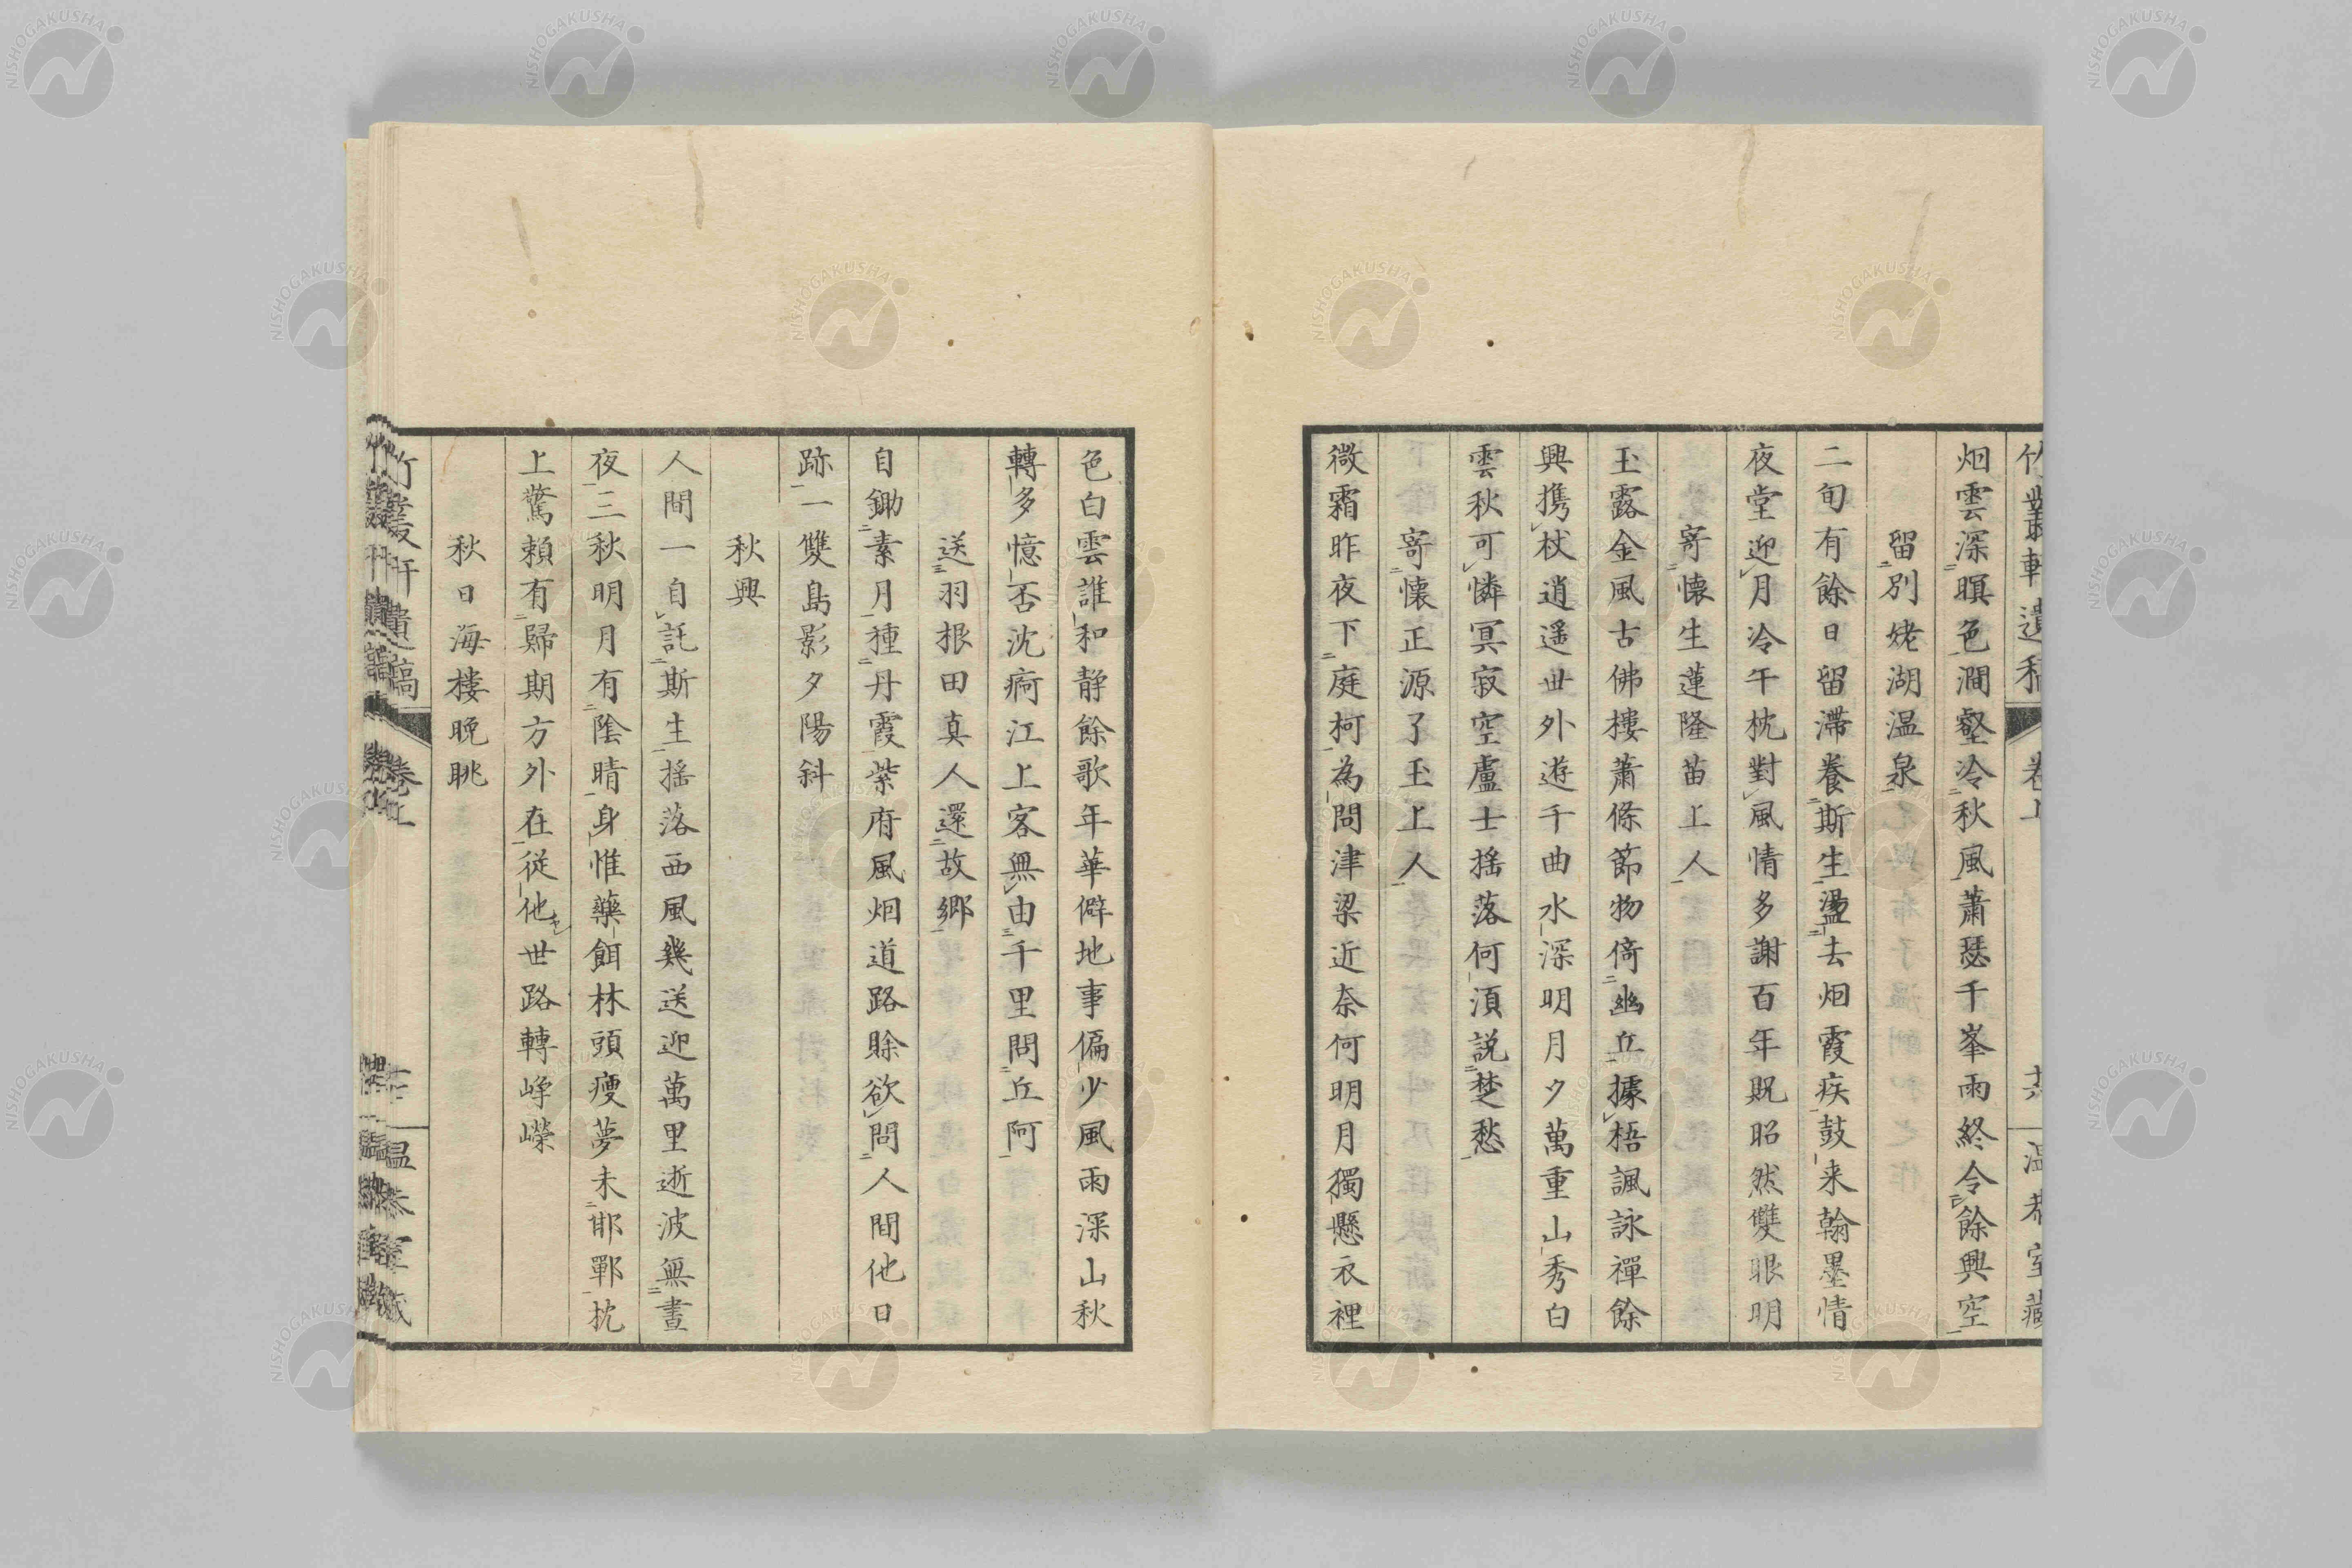 竹叢軒遺稿 卷上 六 温恭室藏
烟雲深暝色澗壑冷秋風蕭瑟千峯雨終令餘興空
留別姥湖温泉
二旬有餘日留滯養斯生盪去烟霞疾鼓来翰墨情
夜堂迎月冷午枕對風情多謝百年貺昭然雙眼明
寄懷生蓮隆苗上人
玉露金風古佛樓蕭條節物倚幽丘據梧諷詠禪餘
興携杖逍遥世外遊千曲水深明月夕萬重山秀白
雲秋可憐冥寂空廬士揺落何須説楚愁
寄懷正源了玉上人
微霜昨夜下庭柯為問津梁近奈何明月獨懸衣裡
色白雲誰和静餘歌年華僻地事偏少風雨深山秋
轉多憶否沈痾江上客無由千里問丘阿
送羽根田真人還故鄉
自鋤素月種丹霞紫府風烟道路賒欲問人間他日
跡一雙島影夕陽斜
秋興
人間一自託斯生揺落西風幾送迎萬里逝波無晝
夜三秋明月有陰晴身惟藥餌林頭瘦夢未邯鄲枕
上驚頼有歸期方外在從他世路轉崢嶸
秋日海樓晚眺